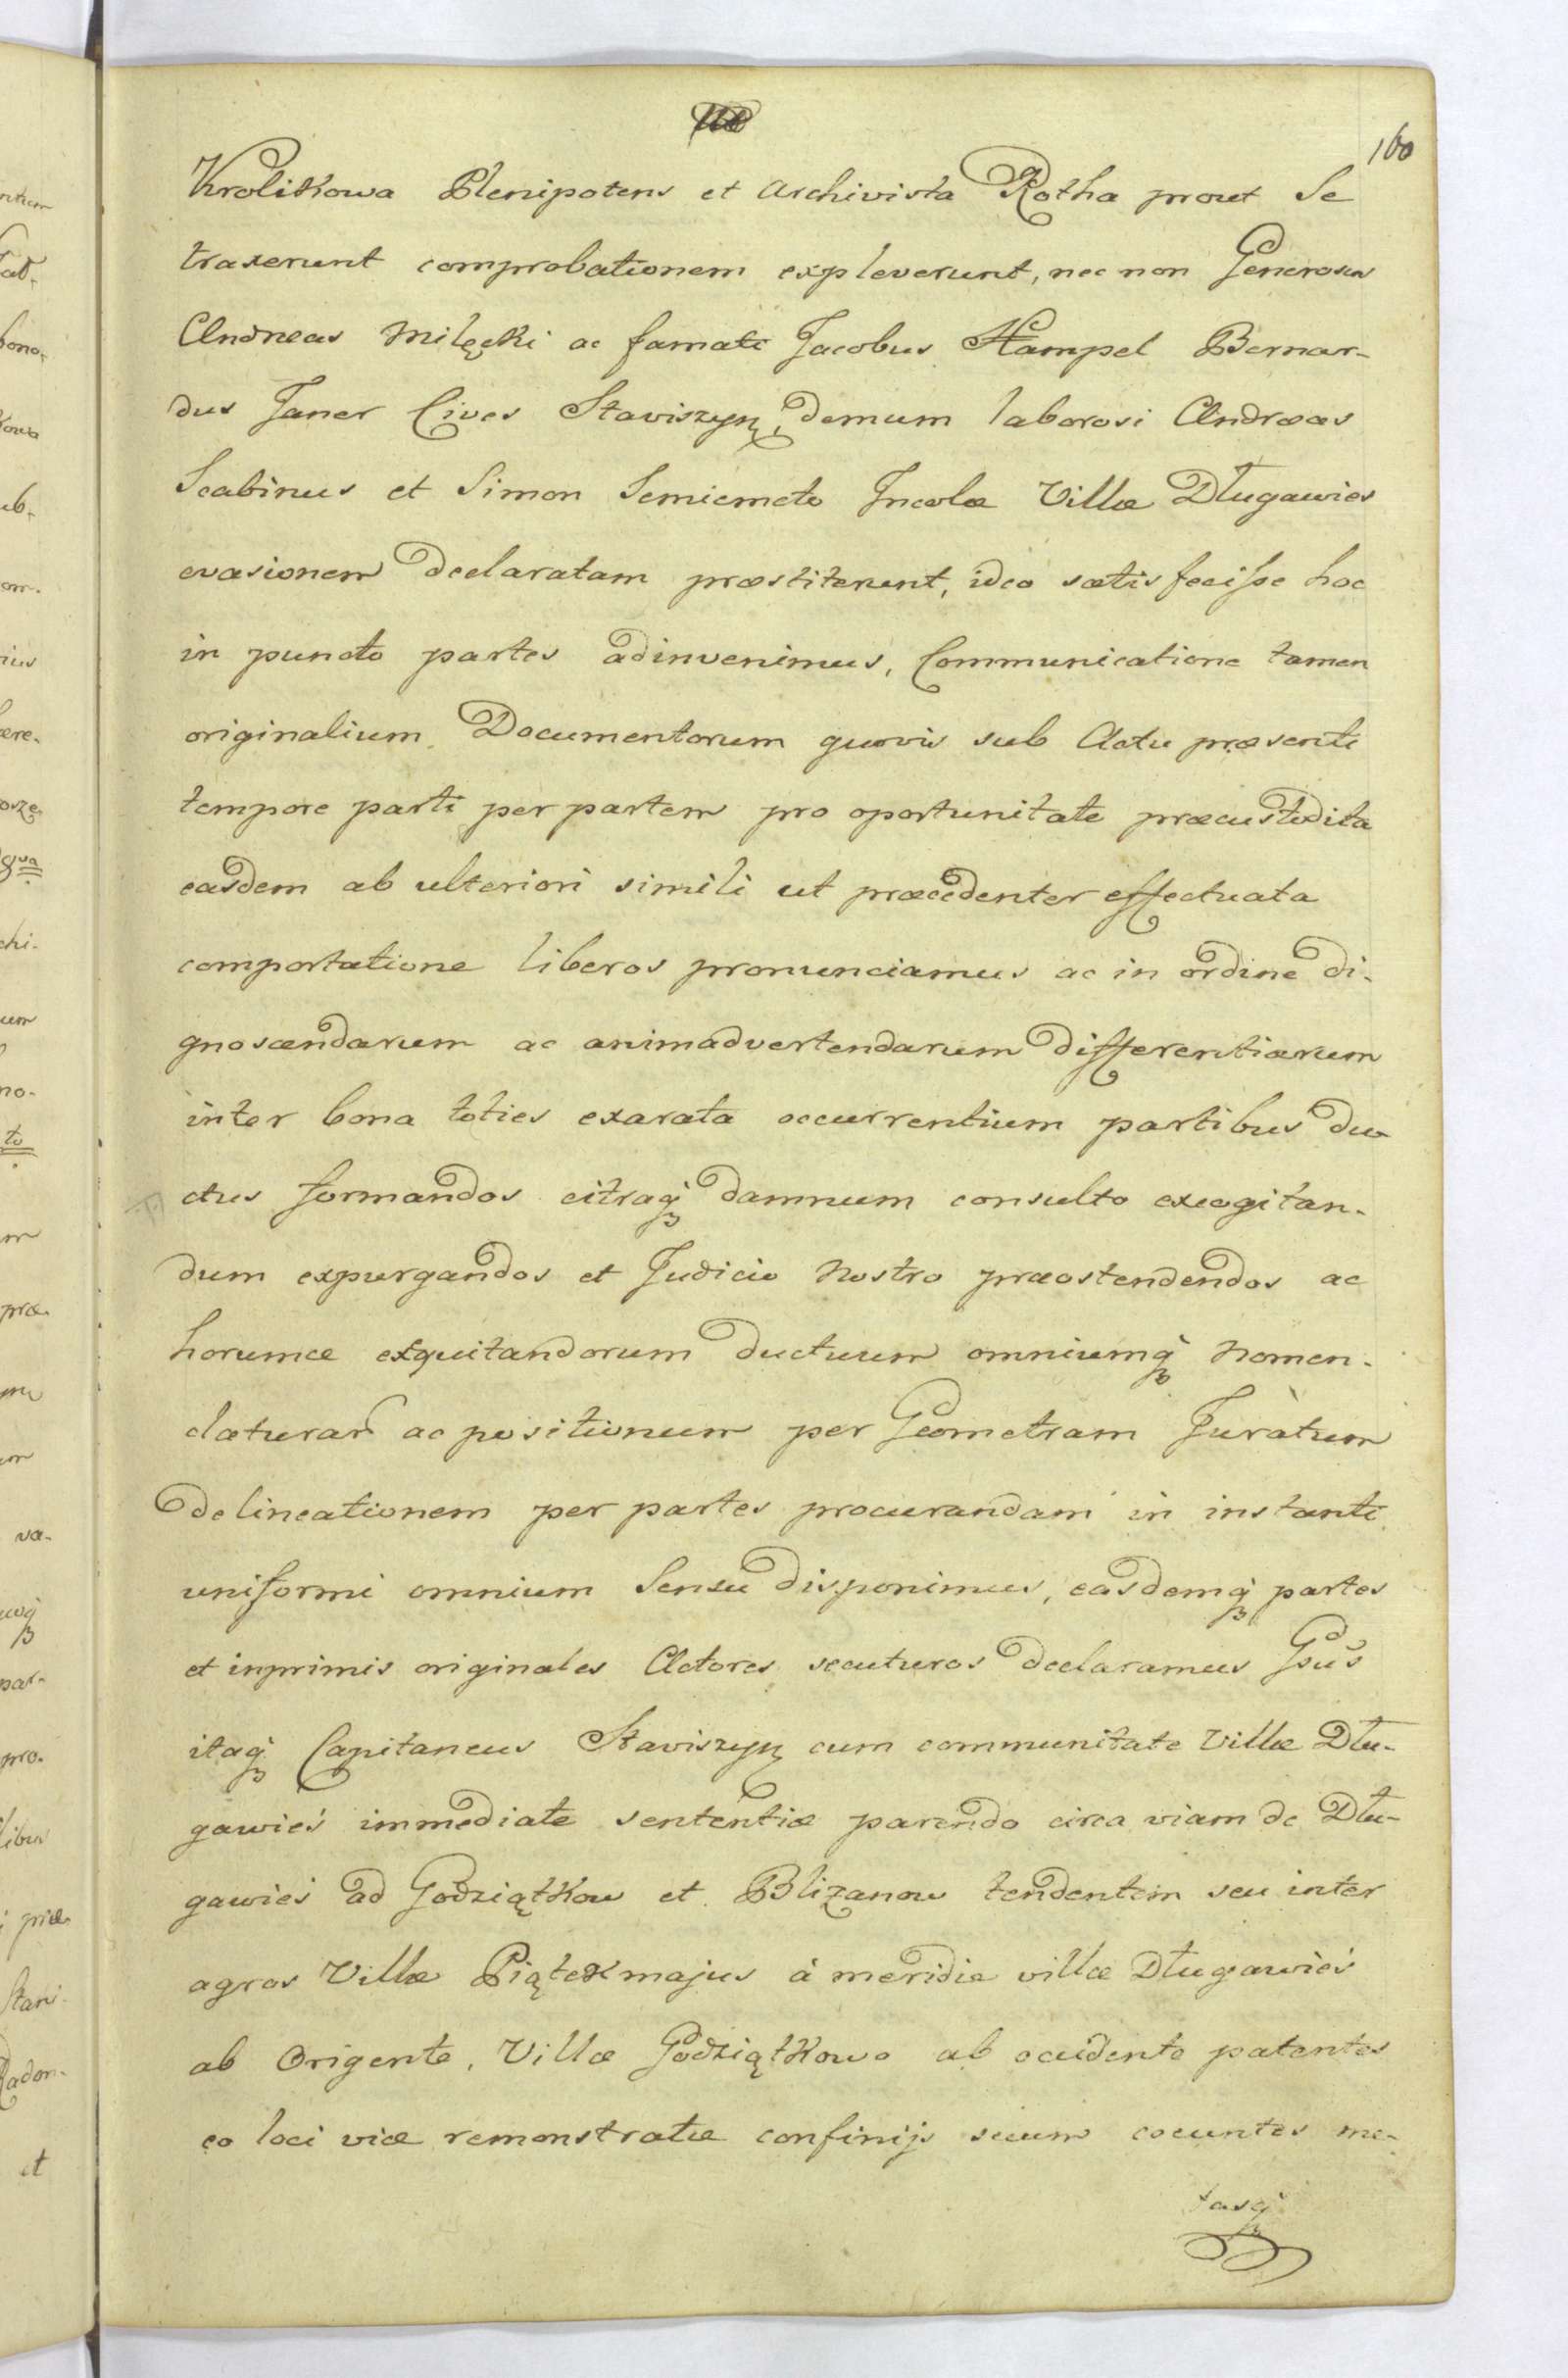 160
Krolikowa Plenipotens et Archivista Rotha prout Se
traxerunt comprobationem expleverunt, nec non Generosus
Andreas Milęcki ac famati Jacobus Hampel Bernar-
dus Janer Cives Staviszyn, demum laborosi Andreas
Scabinus et Simon Semicmeto Incolæ Villæ Długawies
evasionem declaratam præstiterunt, ideo satisfecisse hoc
in puncto partes adinvenimus, Communicatione tamen
originalium Documentorum quovis sub Actu præsenti
tempore parti per partem pro oportunitate præcustodita
easdem ab ulteriori simili ut præcedenter effectuata
comportatione liberos pronunciamus ac in ordine di-
gnoscendarum ac animadvertendarum differentiarum
inter bona toties exarata occurrentium partibus du-
ctus formandos citraq; damnum consulto excogitan-
dum expurgandos et Judicio Nostro præostendendos ac
horumce exquitandorum ductuum omniumq; Nomen-
claturar ac positionum per Geometram Juràtum
delineationem per partes procurandam in instanti
uniformi omnium Sensu disponimus, easdemq; partes
et inprimis originales Actores secuturos declaramus Gsus
itaq; Capitaneus Staviszyn cum communitate Villæ Dłu-
gawieś immediate sententiæ parendo circa viam de Dłu-
gawieś ad Godziątkow et Blizanow tendentem seu inter
agros Villæ Piątek majus à meridie villæ Długawieś
ab Origente, Villæ Godziątkowo ab occidente patentes
eo loci viæ remonstratæ confinijs secum coeuntes me-
tasq;